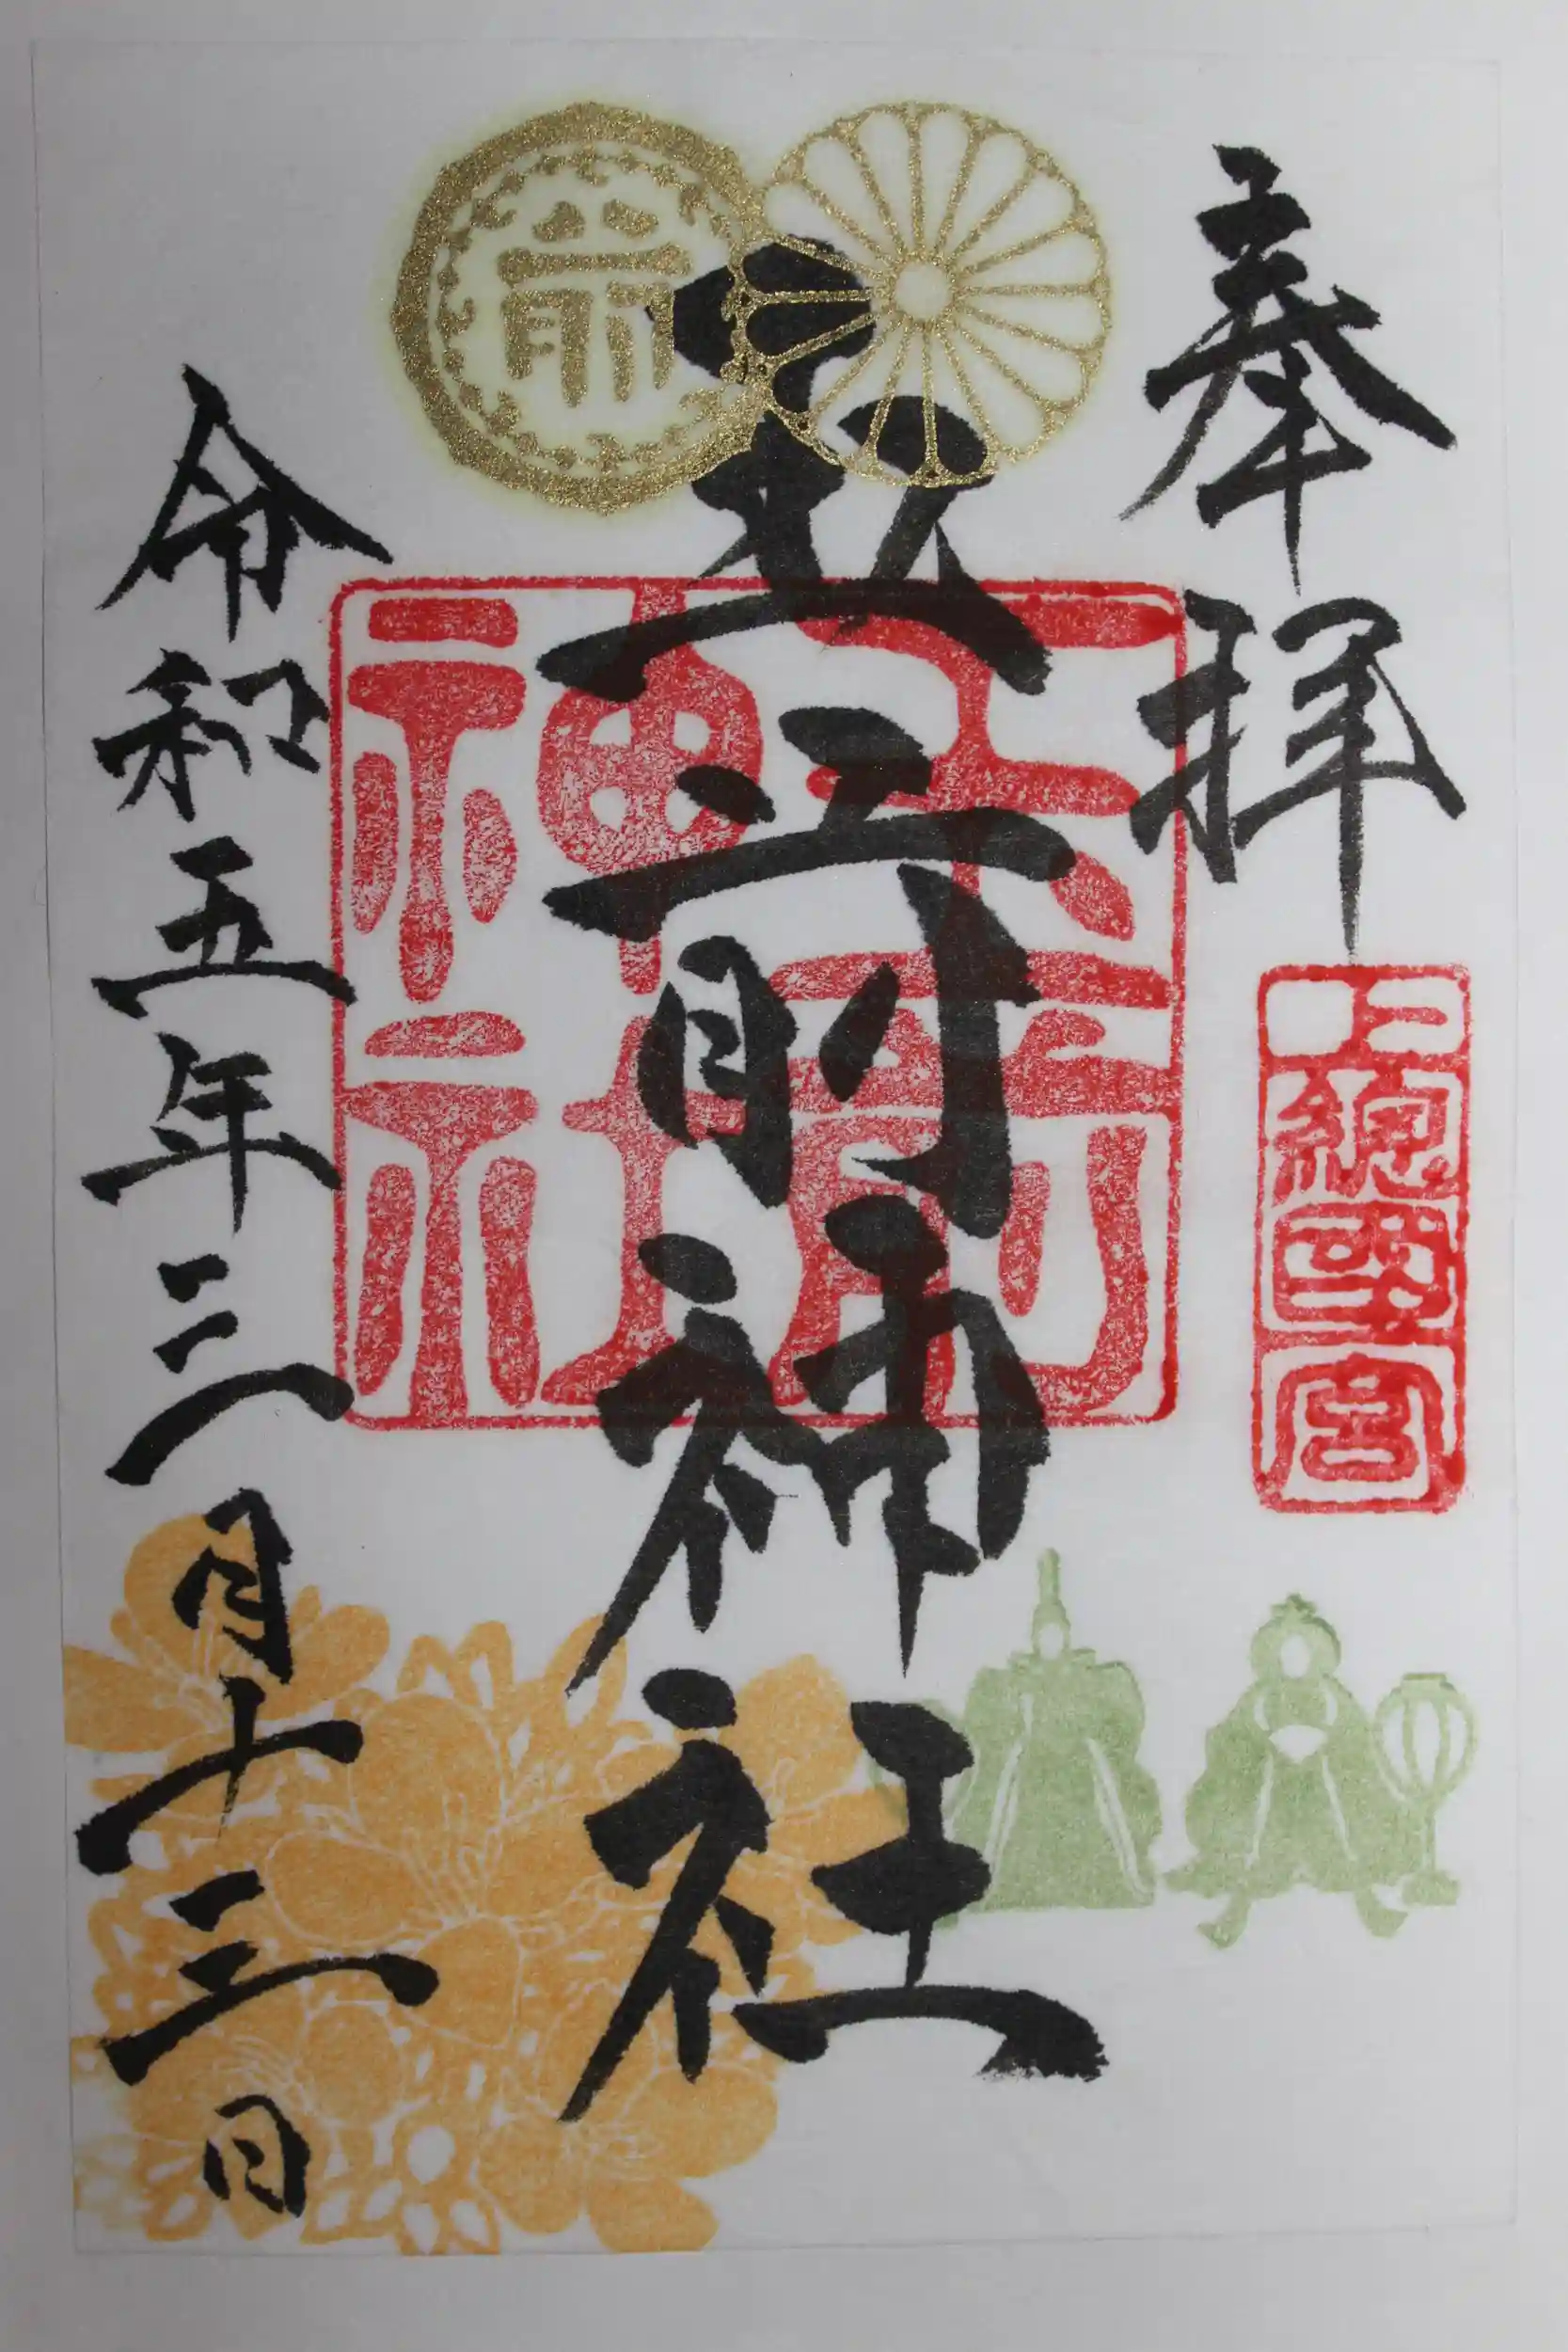 奉拝
上總國一宮
玉前神社
玉前神社
前
令和五年三月十三日